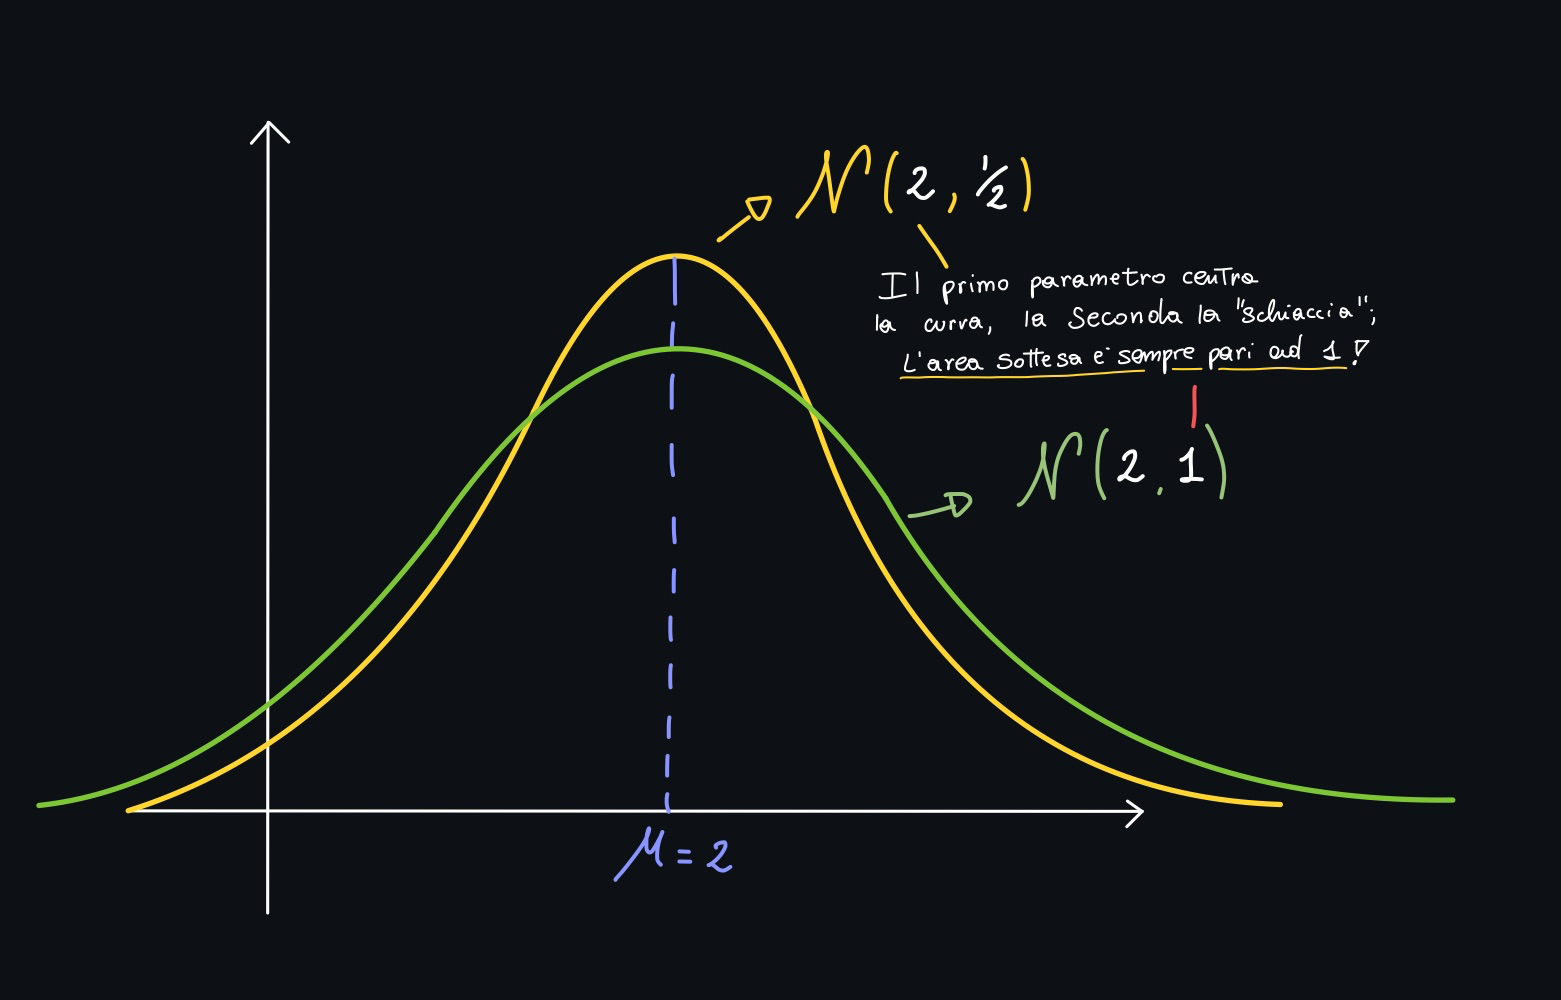 N(2, 1/2)
Il primo parametro centra
la curva, la seconda la "schiaccia";
L'area sottesa è sempre pari ad 1!
N(2, 1)
μ = 2